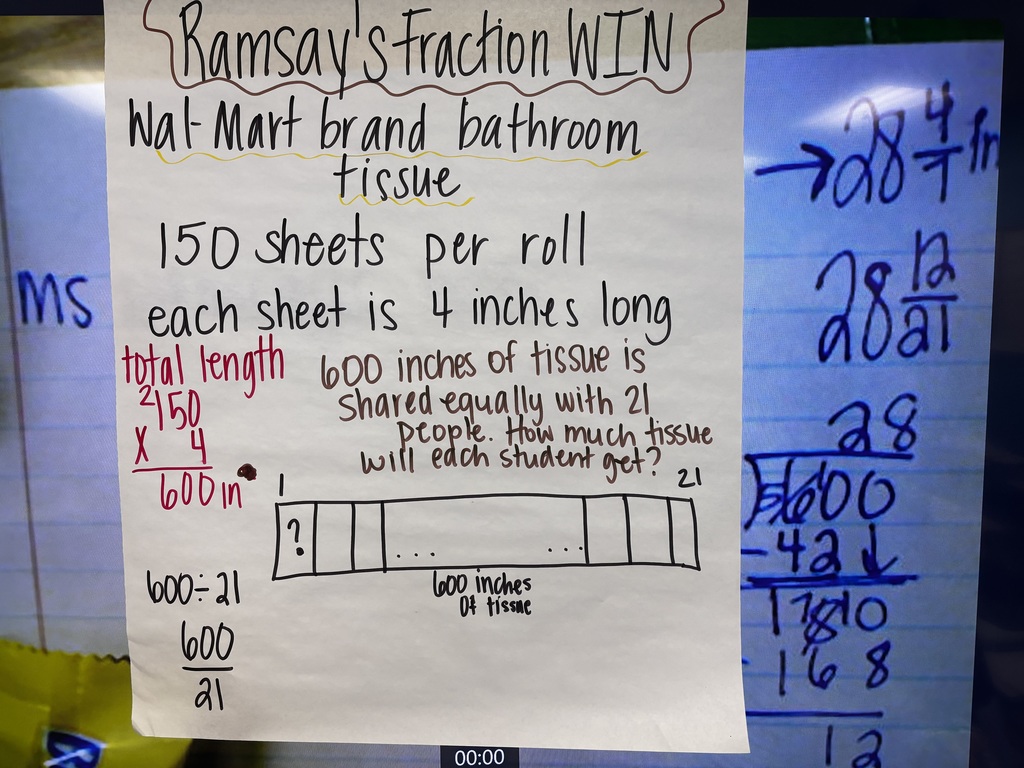 Ramsay's Fraction WIN
Wal-Mart brand bathroom
tissue
150 sheets per roll
each sheet is 4 inches long
total length
2
150
x 4
600 in
600 inches of tissue is
shared equally with 21
people. How much tissue
will each student get?
1
21
?
... ...
600 inches
of tissue
600÷21
600
21
ms
→28 4/7 in
28 12/21
28
600
-42↓
180
-168
12
00:00